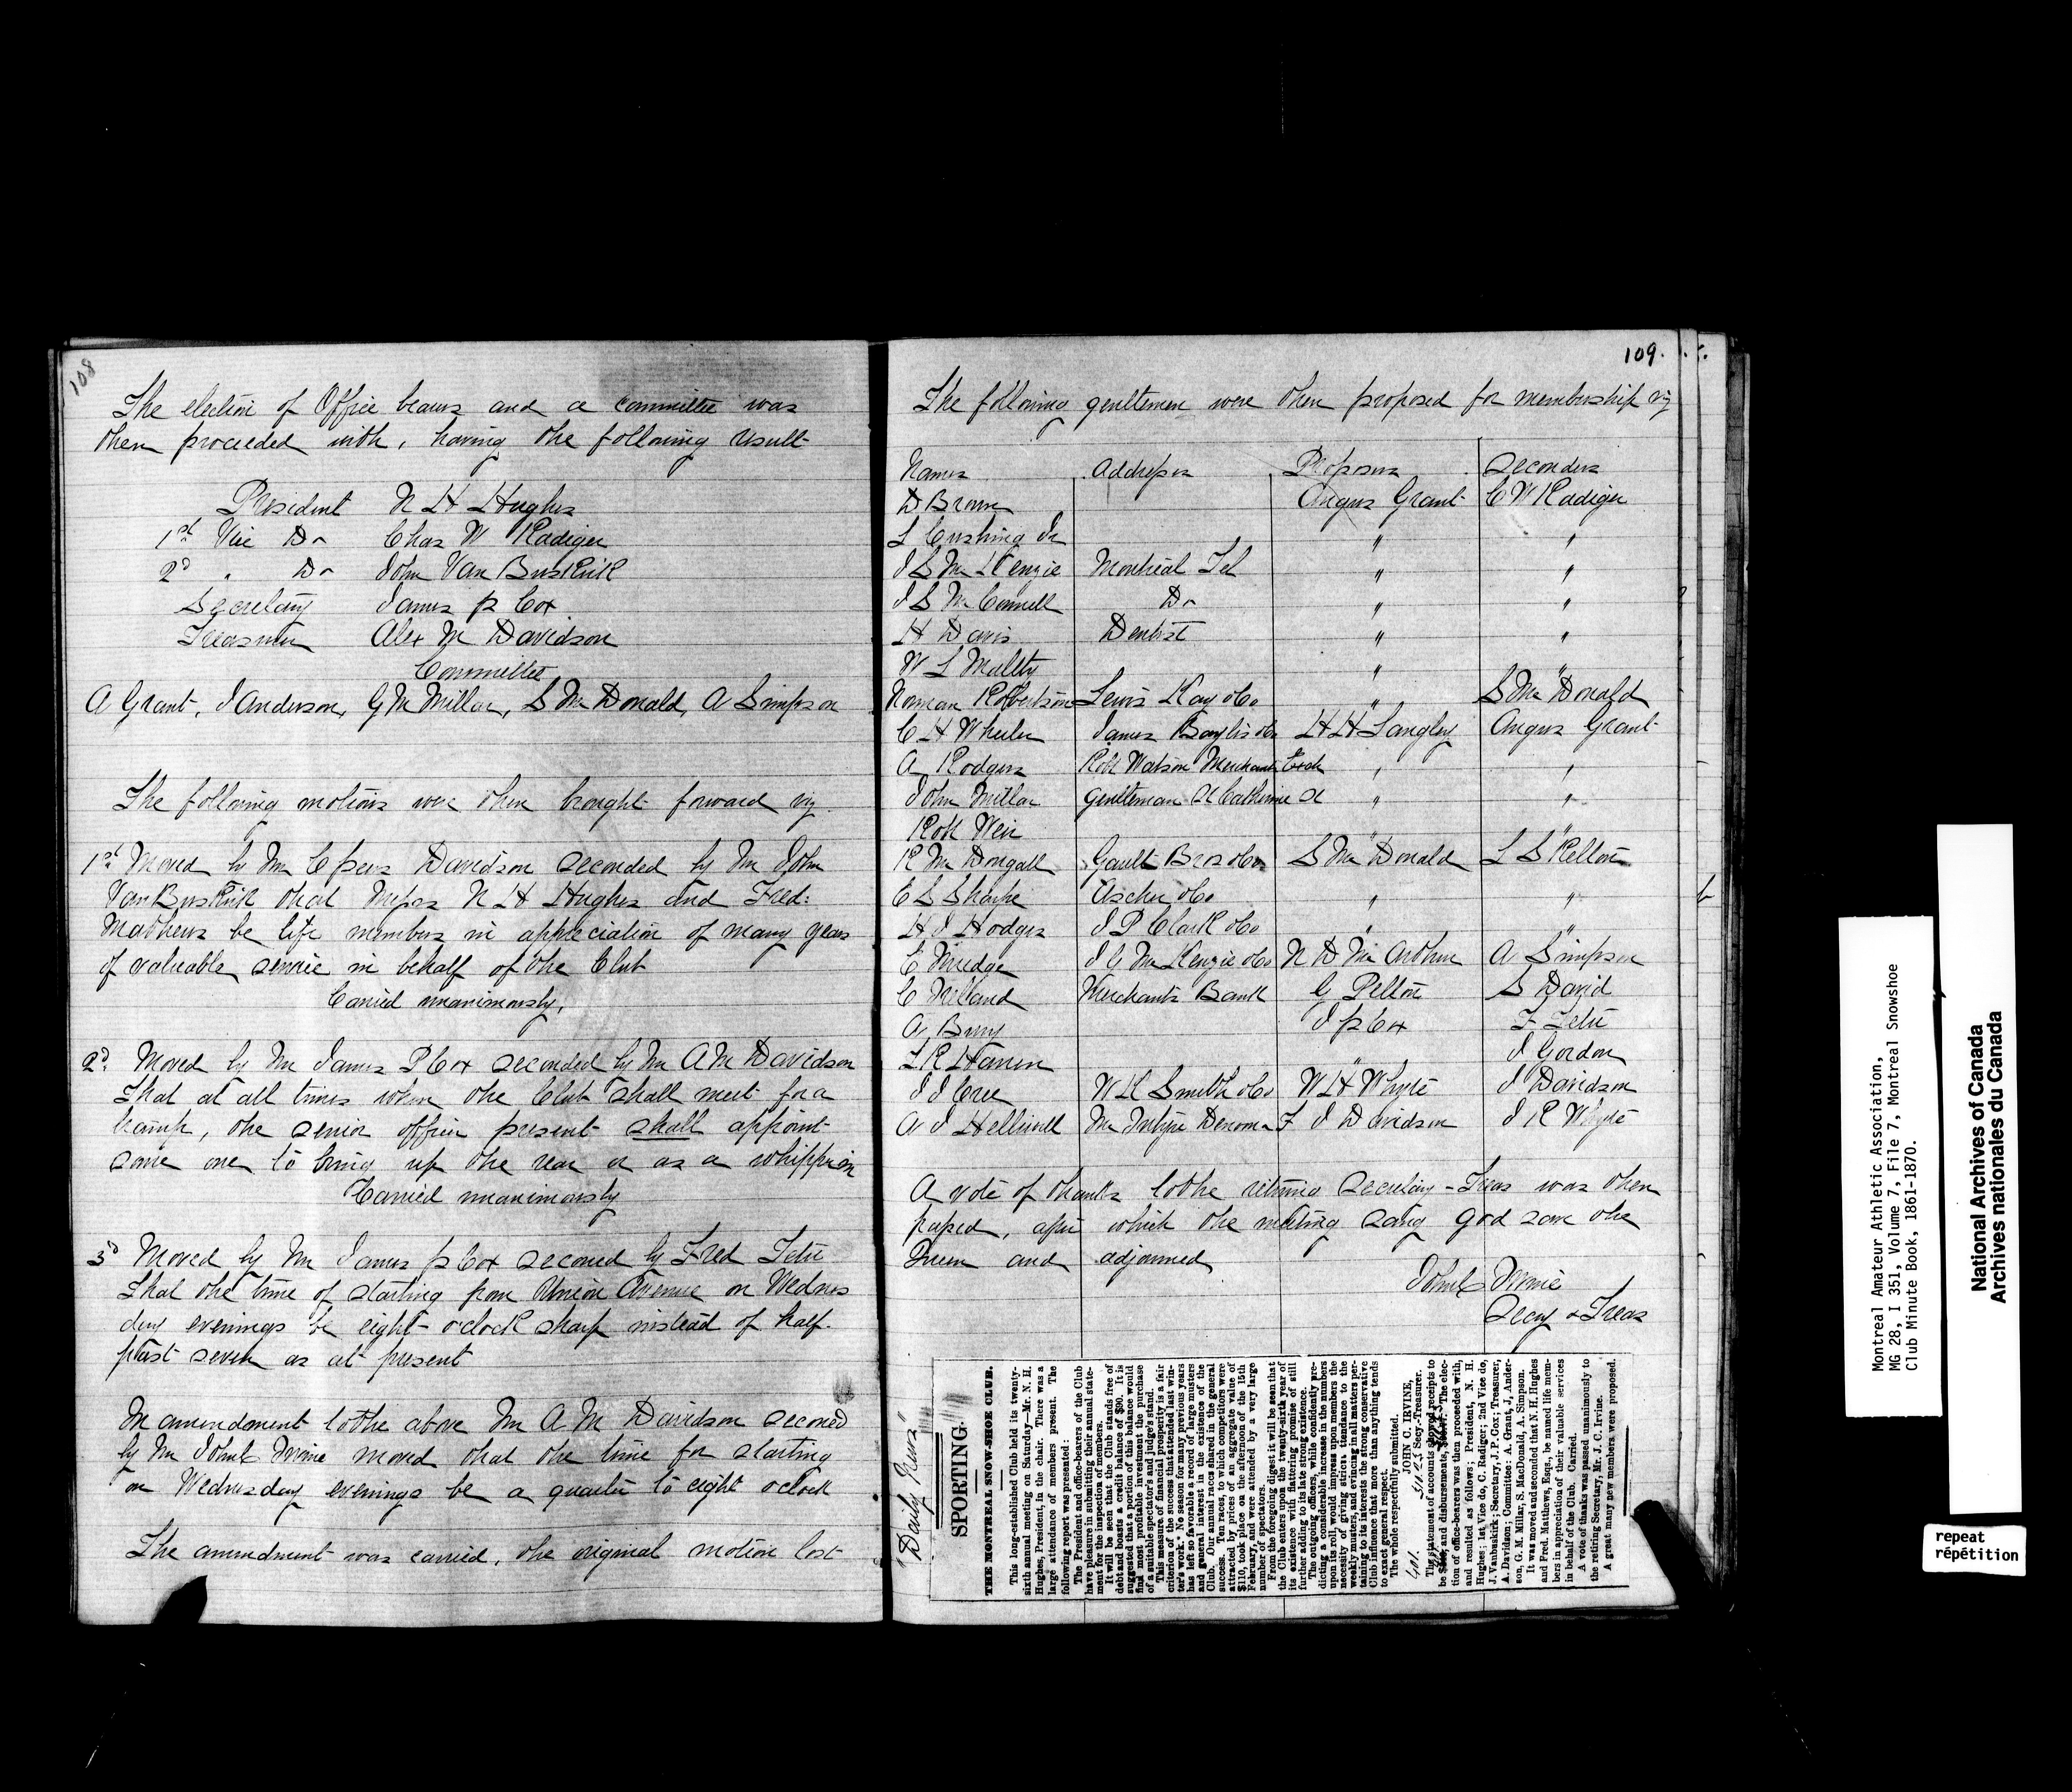 108
The election of Office bearers and a committee was
then proceeded with, having the following result
President N H Hughes
1st Vice Do Chas W Radiger
2d " Do John Van Buskirk
Secretary James P Cox
Treasurer Alex M Davidson
Committee
A Grant, J Anderson, G M Millar, S McDonald, A Simpson
The following motions were then brought forward viz
1st Moved by Mr C Peers Davidson seconded by Mr John
Van Buskirk that Messrs N H Hughes and Fred:
Mathews be life members in appreciation of many years
of valuable service in behalf of the Club
Carried unanimously.
2d. Moved by Mr James P Cox seconded by Mr A M Davidson
That at all times when the Club shall meet for a
tramp, the senior officer present shall appoint
some one to bring up the rear or as a whipper in
Carried unanimously
3d Moved by Mr James P Cox seconed by Fred Tetu
That the time of starting from Union Avenue on Wednes
day evenings be eight o'clock sharp instead of half
past seven as at present
In amendment to the above Mr A M Davidson seconed
by Mr John C Irvine moved that the time for starting
on Wednesday evenings be a quarter to eight o'clock
The amendment was carried, the original motion lost
109.
The following gentlemen were then proposed for membership viz
Names Addresses Proposers Seconders
D Brown Angus Grant C W Radiger
L Cushing Jr " "
J S McKenzie Montreal Tel " "
J S McConnell Do " "
H Davis Dentist " "
W L Maltby " "
Norman Robertson Lewis Kay & Co " S McDonald
C H Wheeler James Baylis & Co H H Langley Angus Grant
A Rodgers Robt Watson Merchants Exch " "
John Millar Gentleman St Catherine St " "
Robt Weir " "
R McDougall Gault Bros & Co S McDonald L S Pelton
E S Sharpe Ascher & Co " "
H J Hodges J P Clark & Co " "
C Mudge J G McKenzie & Co N D McArthur A Simpson
C Ireland Merchants Bank G Pelton S David
A Bury J P Cox F Tetu
" J Gordon
J J Cree W K Smith & Co W H Whyte J Davidson
A J Helliwell F J Davidson J R Whyte
A vote of thanks to the retiring Secretary-Treas was then
passed, after which the meeting sang God save the
Queen and adjourned
John C Irvine
Secy & Treas
"Daily News"
SPORTING.
THE MONTREAL SNOW-SHOE CLUB.
This long-established Club held its twenty-
sixth annual meeting on Saturday—Mr. N. H.
Hughes, President, in the chair. There was a
large attendance of members present. The
following report was presented:
The President and office-bearers of the Club
have pleasure in submitting their annual state-
ment for the inspection of members.
It will be seen that the Club stands free of
debt and boasts a credit balance of $90. It is
suggested that a portion of this balance would
find most profitable investment the purchase
of a suitable spectator's and judge's stand.
This measure of financial prosperity is a fair
criterion of the success that attended last win-
ter's work. No season for many previous years
has left so favorable a record of large musters
and general interest in the existence of the
Club. Our annual races shared in the general
success. Ten races, to which competitors were
attracted by prices of an aggregate value of
$110, took place on the afternoon of the 15th
February, and were attended by a very large
number of spectators.
From the foregoing digest it will be seen that
the Club enters upon the twenty-sixth year of
its existence with flattering promise of still
further adding to its late strong existence.
The outgoing officers, while confidently pre-
dicting a considerable increase in the numbers
upon its roll, would impress upon members the
necessity of giving strict attendance to the
weekly musters, and evincing in all matters per-
taining to its interests the strong conservative
Club influence that more than anything tends
to exact general respect.
The whole respectfully submitted.
JOHN C. IRVINE,
Secy.-Treasurer.
The statement of accounts showed receipts to
be and disbursements, The elec-
tion of office-bearers was then proceeded with,
and resulted as follows; President, N. H.
Hughes; 1st Vice do, C. Radiger; 2nd Vice do,
J. Vanbuskirk; Secretary, J. P. Cox; Treasurer,
A. Davidson; Committee: A. Grant, J, Ander-
son, G. M. Millar, S. MacDonald, A. Simpson.
It was moved and seconded that N. H. Hughes
and Fred. Matthews, Esqs., be named life mem-
bers in appreciation of their valuable services
in behalf of the Club. Carried.
A vote of thanks was passed unanimously to
the retiring Secretary, Mr. J. C. Irvine.
A great many new members were proposed.
Montreal Amateur Athletic Association,
MG 28, I 351, Volume 7, File 7, Montreal Snowshoe
Club Minute Book, 1861-1870.
National Archives of Canada
Archives nationales du Canada
repeat
répétition